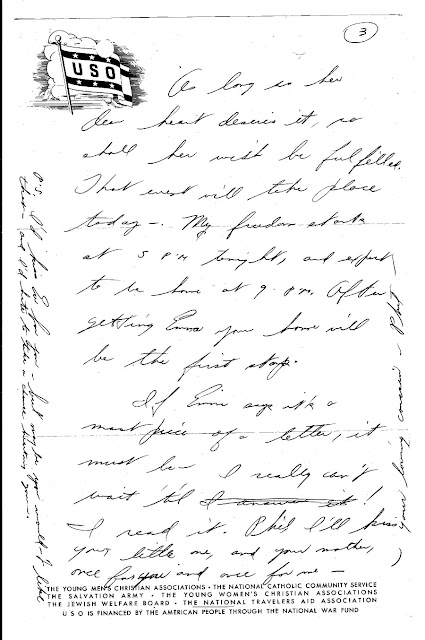 3
USO
As long as her
dear heart desires it, so
shall her wish be fulfilled.
That event will take place
today —. My freedom starts
at 5 PM tonight, and expect
to be home at 9 P.M. After
getting Emma your home will
be the first stop.
If Emma says it's a
mast piece of a letter, it
must be — I really can't
wait 'til I answer it!
I read it. Phil I'll kiss
your little one, and your mother,
once for you and once for me —
your loving cousin — Phil
P.S. I'd
THE YOUNG MEN'S CHRISTIAN ASSOCIATIONS · THE NATIONAL CATHOLIC COMMUNITY SERVICE
THE SALVATION ARMY · THE YOUNG WOMEN'S CHRISTIAN ASSOCIATIONS
THE JEWISH WELFARE BOARD · THE NATIONAL TRAVELERS AID ASSOCIATION
U S O IS FINANCED BY THE AMERICAN PEOPLE THROUGH THE NATIONAL WAR FUND